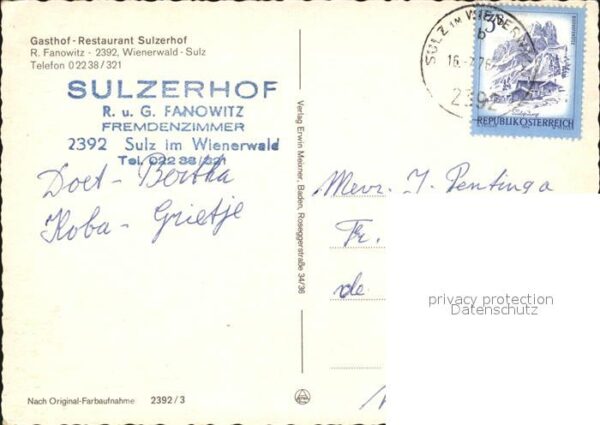 Gasthof - Restaurant Sulzerhof
R. Fanowitz · 2392, Wienerwald - Sulz
Telefon 0 22 38 / 321
SULZERHOF
R. u. G. FANOWITZ
FREMDENZIMMER
2392 Sulz im Wienerwald
Tel. 022 38/321
Doet - Bertha
Koba - Grietje
Verlag Erwin Meixner, Baden, Roseggerstraße 34/36
SULZ IM WIENERWALD
b
16. 76
2392
REPUBLIK ÖSTERREICH
Mevr. J. Pentinga
Fr.
de
privacy protection
Datenschutz
Nach Original-Farbaufnahme 2392/3